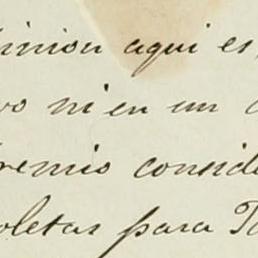 inion aqui es,
vo ni en un
remio consid
oletas para